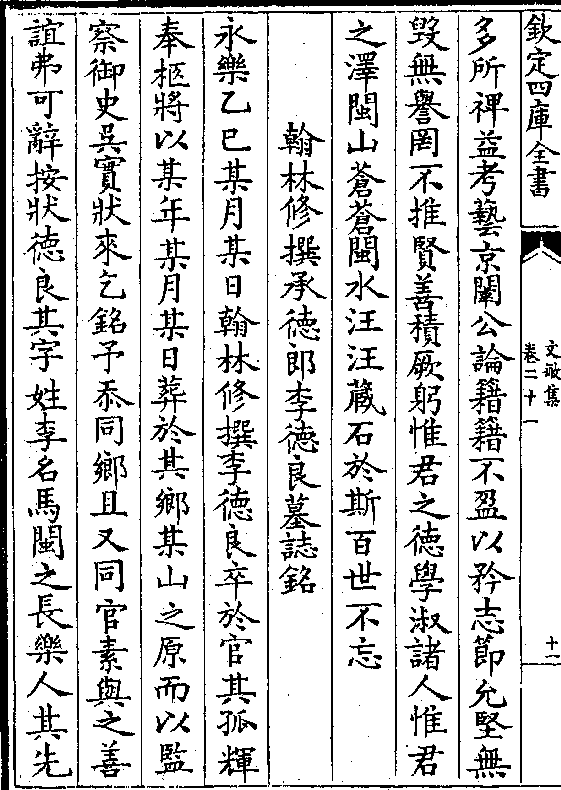 欽定四庫全書
文敏集
卷二十一
十一
多所裨益考藝京闈公論籍籍不盈以矜志節允堅無
毀無譽罔不推賢善積厥躬惟君之德學淑諸人惟君
之澤閩山蒼蒼閩水汪汪蔵石於斯百世不忘
翰林修撰承徳郎李徳良墓誌銘
永樂乙巳某月某日翰林修撰李徳良卒於官其孤輝
奉柩將以某年某月某日葬於其鄉某山之原而以監
察御史吳實狀來乞銘予忝同鄉且又同官素與之善
誼弗可辭按狀徳良其字姓李名馬閩之長樂人其先